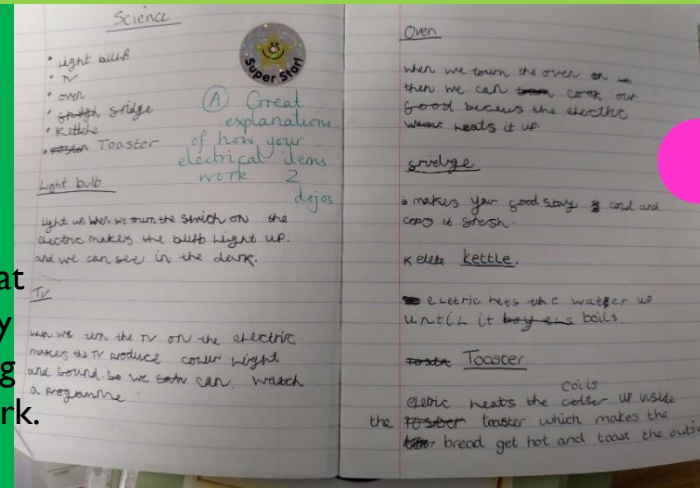 Science
• Light bulb
• TV
• oven
• fridge
• Kittle
• Toaster
Super Star!
A Great
explanations
of how your
electrical items
work 2
dojos
Light bulb
Light us when we turn the switch on the
electric makes the bulb light up.
and we can see in the dark.
TV
when we turn the TV on the electric
makes the TV produce coler light
and sound. So we can watch
a programme
Oven
when we tourn the oven on
then we can cook our
food becaus the electric
heats it up.
fridge
• makes your food stay cold and
it fresh.
kettle.
electric hets the water up
until it boils.
Toaster.
eletric heats the coils up inside
the toaster which makes the
bread get hot and toast the outsi
at
y
g
rk.